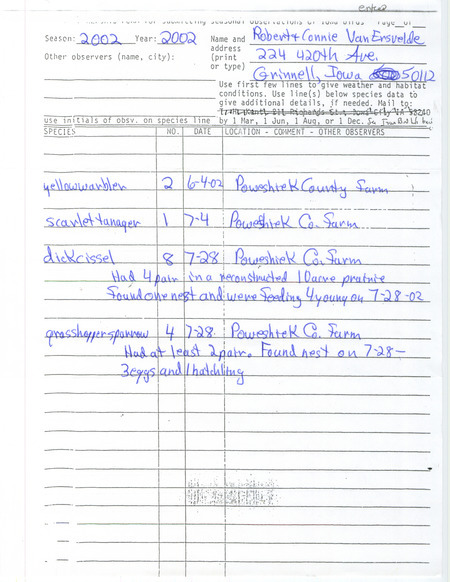 entered
Season: 2002 Year: 2002 Name and Robert & Connie Van Ersvelde
Other observers (name, city): address 224 420th Ave.
(print
or type) Grinnell, Iowa 50112
Use first few lines to give weather and habitat
conditions. Use line(s) below species data to
give additional details, if needed. Mail to:
use initials of obsv. on species line by 1 Mar, 1 Jun, 1 Aug, or 1 Dec.
SPECIES NO. DATE LOCATION - COMMENT - OTHER OBSERVERS
yellow warbler 2 6-4-02 Poweshiek County Farm
scarlet tanager 1 7-4 Poweshiek Co. Farm
dickcissel 8 7-28 Poweshiek Co. Farm
Had 4 pair in a reconstructed 10 acre prairie
found one nest and were feeding 4 young on 7-28-02
grasshopper sparrow 4 7-28 Poweshiek Co. Farm
Had at least 2 pair. Found nest on 7-28-
3 eggs and 1 hatchling